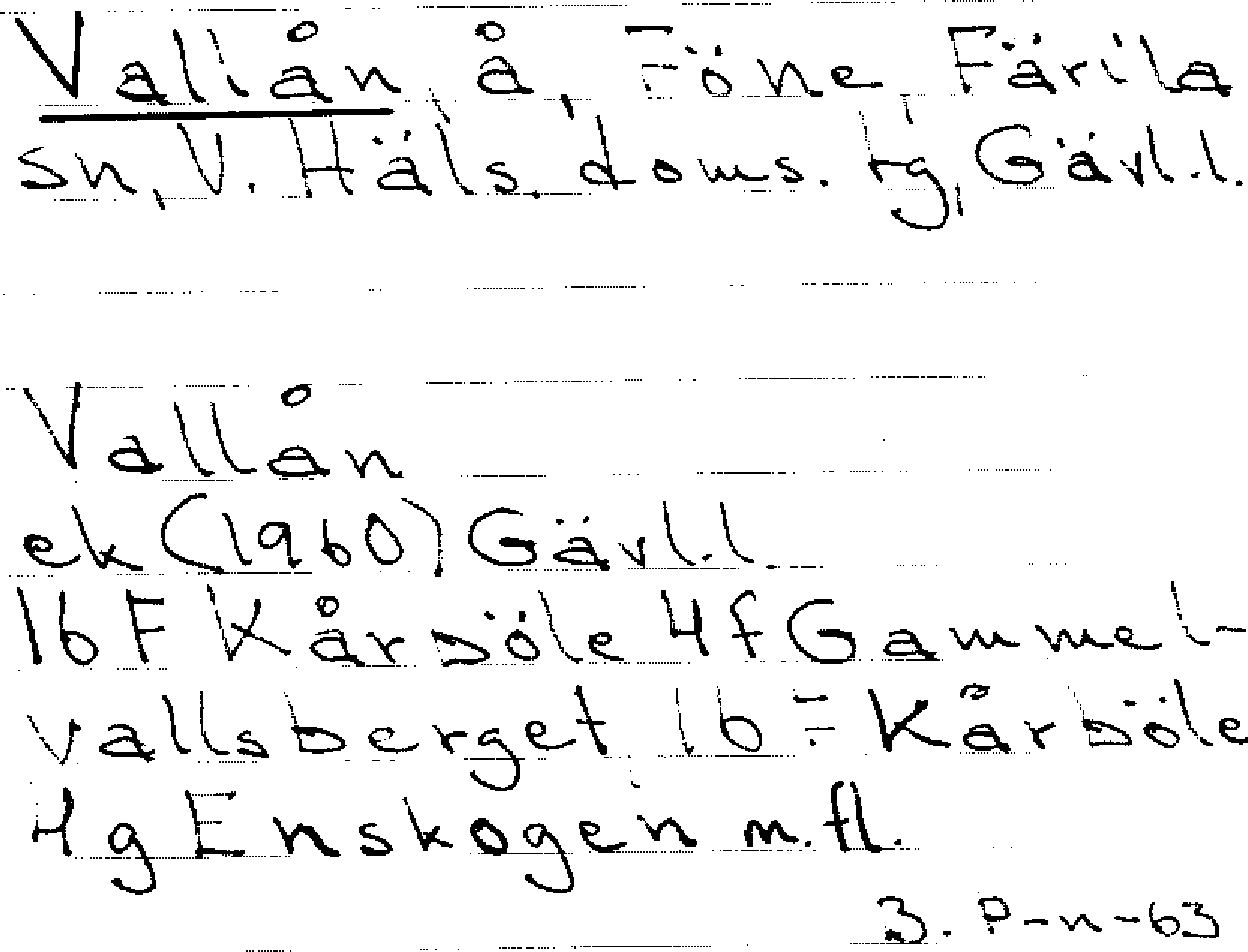 Vallån, å, Föne, Färila
sn, V. Häls. doms. tg, Gävl.l.
Vallån
ek (1960) Gävl.l
16F Kårböle 4f Gammel-
vallsberget 16F Kårböle
4g Enskogen m.fl.
B. P-n-63